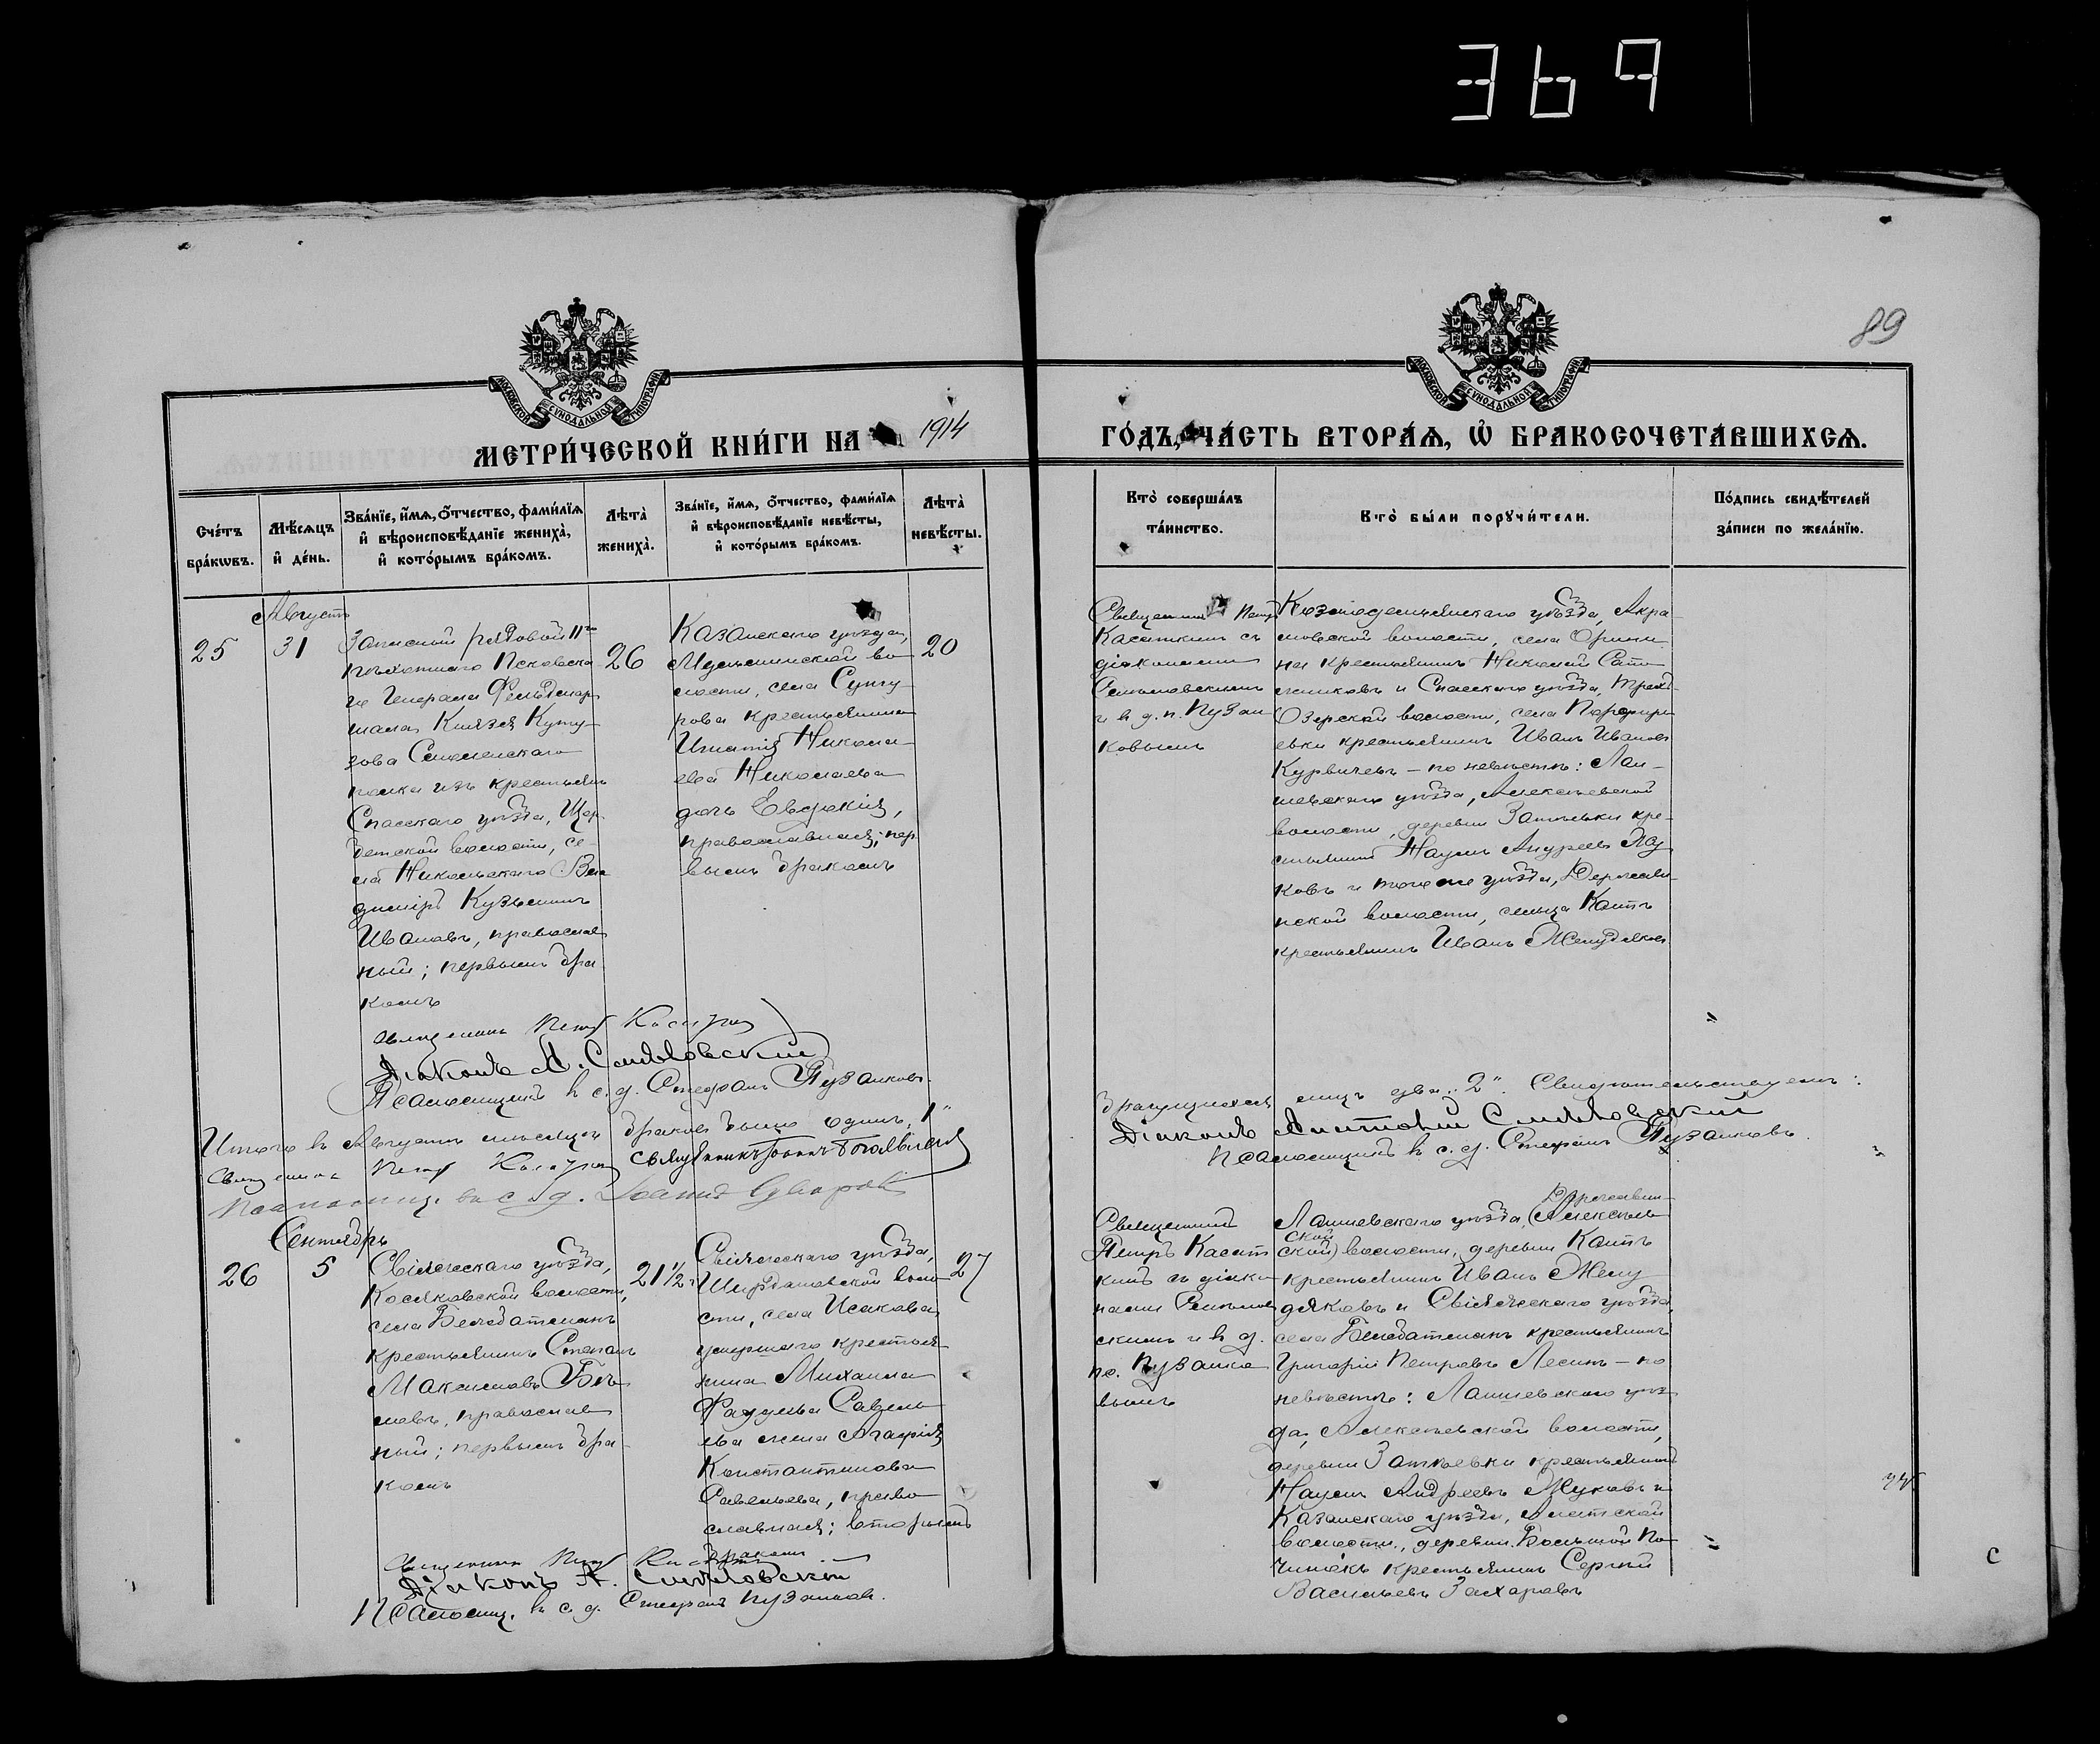 369
89
МОСКОВСКОЙ СУНОДАЛЬНОЙ ТИПОГРАФІИ
МОСКОВСКОЙ СУНОДАЛЬНОЙ ТИПОГРАФІИ
МЕТРИ́ЧЕСКОЙ КНИ́ГИ НА 1914
ГО́ДЪ, ЧА́СТЬ ВТОРА́Ѧ, Ѽ БРАКОСОЧЕТА́ВШИХСѦ.
Сче́тъ
бра́кѡвъ.
Мѣ́сѧцъ
и҆ де́нь.
Зва́нїе, и҆́мѧ, ѻ҆́тчество, фами́лїѧ
и҆ вѣроисповѣ́данїе жениха̀,
и҆ кото́рымъ бра́комъ.
Лѣта̀
жениха̀.
Зва́нїе, и҆́мѧ, ѻ҆́тчество, фами́лїѧ
и҆ вѣроисповѣ́данїе невѣ́сты,
и҆ кото́рымъ бра́комъ.
Лѣта̀
невѣ́сты.
Кто̀ соверша́лъ
та́инство.
Кто̀ бы́ли порꙋчи́тели.
По́дпись свидѣ́телей
за́писи по жела́нїю.
Августъ
25
31
Запасный рядовой 11го
пѣхотнаго Псковска
го Генерала Фельдмар
шала Князя Куту
зова Смоленскаго
полка изъ крестьянъ
Спасскаго уѣзда, Щер
бетской волости, се
ла Никольскаго Вла
димiръ Кузьминъ
Ивановъ, православ
ный; первымъ бра
комъ
26
Казанскаго уѣзда,
во
лости, села Сунгу
рова крестьянина
Игнатiя Никола
ева Николаева
дочь Евдокiя,
православная; пер
вымъ бракомъ
20
Священникъ Петръ
Касаткинъ съ
дiакономъ
Смѣловскимъ
и в. д. п. Пузан
ковымъ
Козмодемьянскаго уѣзда, Акра
мовской волости, села
на крестьянинъ Николай
и Спасскаго уѣзда, Трех
Озерской волости, села
крестьянинъ Иванъ Ивановъ
Курвичевъ – по невѣстѣ: Лаи
шевскаго уѣзда, Алексѣевской
волости, деревни крe
стьянинъ Наумъ Андреевъ Жу
ковъ и того же уѣзда, Держави
нской волости, сельца
крестьянинъ Иванъ Желудковъ
Священникъ Петръ Касаткинъ
Дiаконъ А. Смѣловскiй
Псаломщикъ в. с. д. Стефанъ Пузанковъ.
Итого въ Августѣ мѣсяцѣ браковъ было одинъ „1"
брачущихся лицъ два „2". Свидѣтельствуемъ:
Священникъ Петръ Касаткинъ Священникъ Iоаннъ Богоявленскiй
Дiаконъ Антонiй Смѣловскiй
Псаломщикъ в. с. д. Стефанъ Пузанковъ.
Псаломщ. в с. д.
Сентябрь
26
5
Свiяжскаго уѣзда,
волости,
села Бѣлобатманъ
крестьянинъ Степанъ
Максимовъ Бѣ
ловъ, православ
ный; первымъ бра
комъ
21 1/2 г
Свiяжскаго уѣзда,
Ширданской воло
сти, села Исакова
умершаго крестья
нина Михаила
Фадѣева Савель
ева жена Агафiя
Константинова
Савельева, право
славная; вторымъ
бракомъ
27
Священникъ
Петръ Касат
кинъ съ дiако
номъ Смѣлов
скимъ и в. д.
пс. Пузанко
вымъ
Державин
Лаишевскаго уѣзда, (Алексѣев
ской
ской) волости, деревни
крестьянинъ Иванъ Желу
дковъ и Свiяжскаго уѣзда,
села Бѣлобатманъ крестьянинъ
Григорiй Петровъ Лесинъ – по
невѣстѣ: Лаишевскаго уѣз
да, Алексѣевской волости,
деревни крестьянинъ
Наумъ Андреевъ Жуковъ и
Казанскаго уѣзда, Алатской
волости, деревни Большой По
чинокъ крестьянинъ Сергѣй
Васильевъ Захаровъ
Священникъ Петръ Касаткинъ
Дiаконъ А. Смѣловскiй
Псаломщ. в. с. д. Стефанъ Пузанковъ.